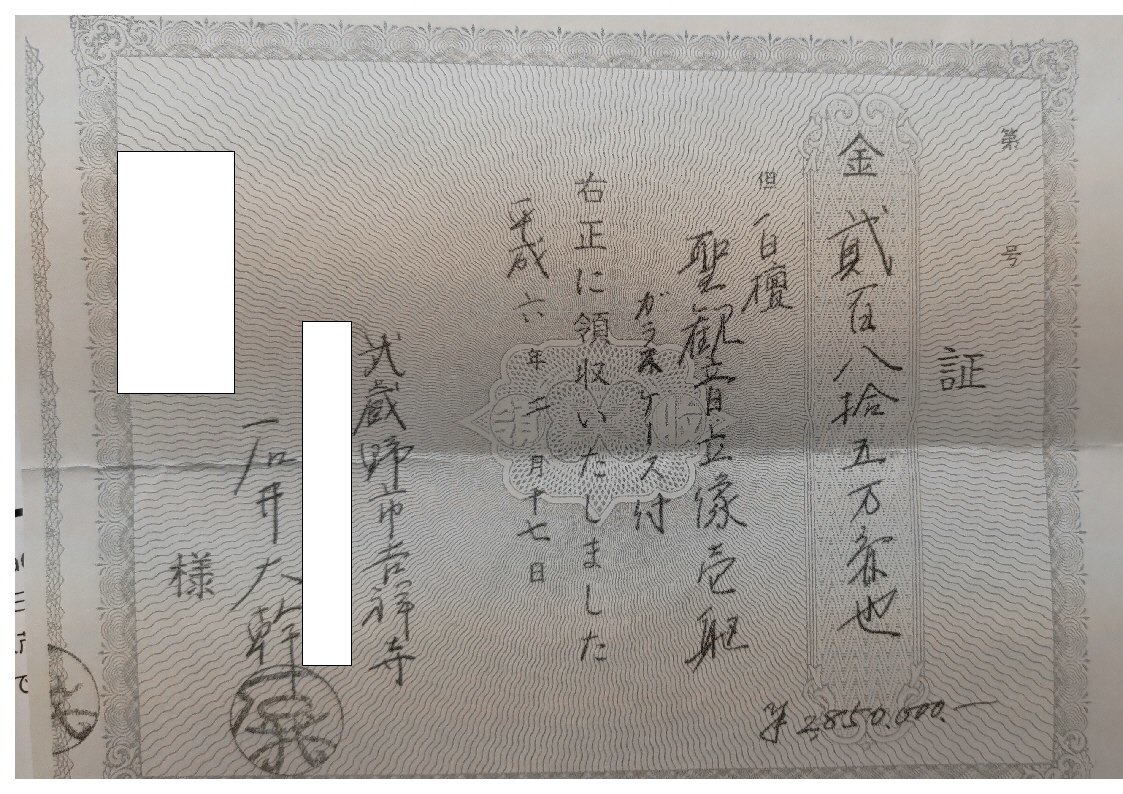 第　号
証
金 貳百八拾五万
也
¥2,850.000.—
但 白檀
聖観音立像壱躯
ガラスケース付
右正に領収いたしました
平成六年二月十七日
武蔵野市吉祥寺
石井大幹
様